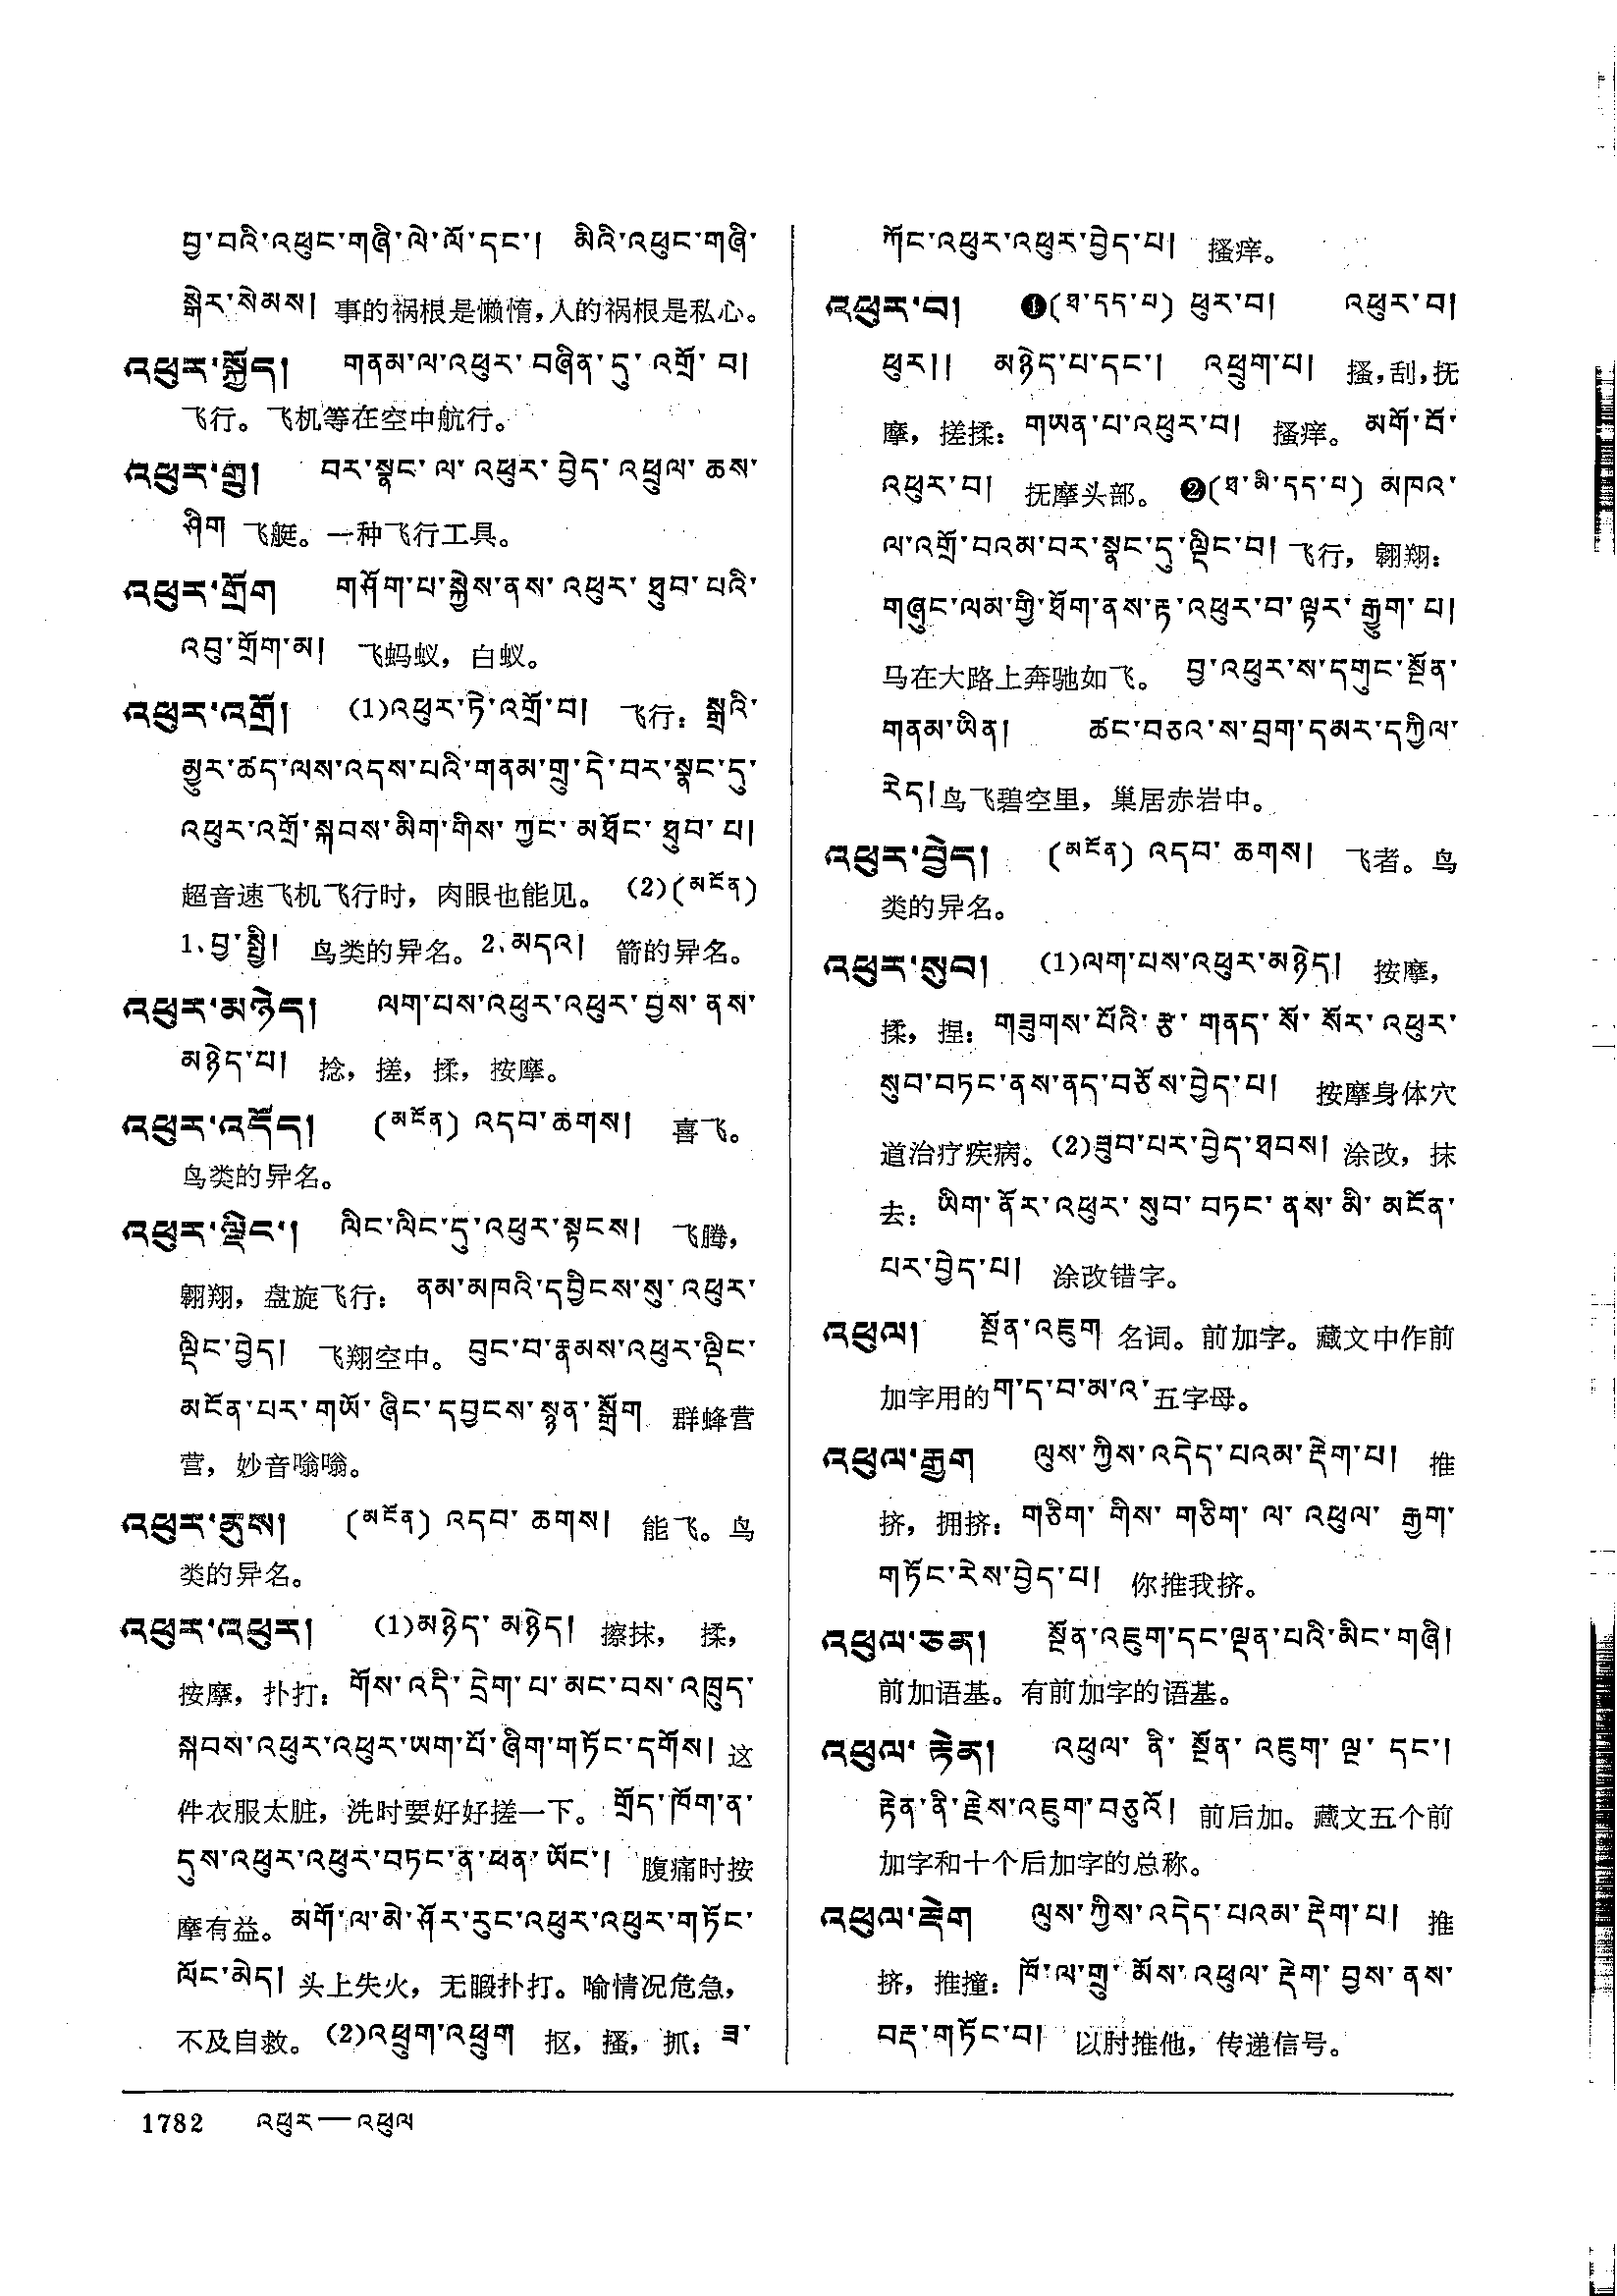 བྱ་བའི་འཕུང་གཞི་ལེ་ལོ་དང་། མིའི་འཕུང་གཞི་
སྒེར་སེམས། 事的祸根是懒惰，人的祸根是私心。
འཕུར་སྐྱོད། གནམ་ལ་འཕུར་བཞིན་དུ་འགྲོ་བ།
飞行。飞机等在空中航行。
འཕུར་གྲུ། བར་སྣང་ལ་འཕུར་བྱེད་འཕྲུལ་ཆས་
ཤིག 飞艇。一种飞行工具。
འཕུར་གྲོག གཤོག་པ་སྐྱེས་ནས་འཕུར་ཐུབ་པའི་
འབུ་གྲོག་མ། 飞蚂蚁，白蚁。
འཕུར་འགྲོ། (1)འཕུར་ཏེ་འགྲོ་བ། 飞行：སྒྲའི་
མྱུར་ཚད་ལས་འདས་པའི་གནམ་གྲུ་དེ་བར་སྣང་དུ་
འཕུར་འགྲོ་སྐབས་མིག་གིས་ཀྱང་མཐོང་ཐུབ་པ།
超音速飞机飞行时，肉眼也能见。(2)(མངོན)
1.བྱ་སྤྱི། 鸟类的异名。2.མདའ། 箭的异名。
འཕུར་མཉེད། ལག་པས་འཕུར་འཕུར་བྱས་ནས་
མཉེད་པ། 捻，搓，揉，按摩。
འཕུར་འདོད། (མངོན) འདབ་ཆགས། 喜飞。
鸟类的异名。
འཕུར་ལྡིང་། ལིང་ལིང་དུ་འཕུར་སྟངས། 飞腾，
翱翔，盘旋飞行：ནམ་མཁའི་དབྱིངས་སུ་འཕུར་
ལྡིང་བྱེད། 飞翔空中。བུང་བ་རྣམས་འཕུར་ལྡིང་
མངོན་པར་གཡོ་ཞིང་དབྱངས་སྙན་སྒྲོག 群蜂营
营，妙音嗡嗡。
འཕུར་ནུས། (མངོན) འདབ་ཆགས། 能飞。鸟
类的异名。
འཕུར་འཕུར། (1)མཉེད་མཉེད། 擦抹，揉，
按摩，扑打：གོས་འདི་དྲེག་པ་མང་བས་འཁྲུད་
སྐབས་འཕུར་འཕུར་ཡག་པོ་ཞིག་གཏོང་དགོས། 这
件衣服太脏，洗时要好好搓一下。གྲོད་ཁོག་ན་
དུས་འཕུར་འཕུར་བཏང་ན་ཕན་ཡོང་། 腹痛时按
摩有益。མགོ་ལ་མེ་ཤོར་རུང་འཕུར་འཕུར་གཏོང་
ལོང་མེད། 头上失火，无暇扑打。喻情况危急，
不及自救。(2)འཕྲུག་འཕྲུག 抠，搔，抓：ཟ་
ཀོང་འཕུར་འཕུར་བྱེད་པ། 搔痒。
འཕུར་བ། ❶(ཐ་དད་པ) ཕུར་བ། འཕུར་བ།
ཕུར།། མཉེད་པ་དང་། འཕྲུག་པ། 搔，刮，抚
摩，搓揉：གཡན་པ་འཕུར་བ། 搔痒。མགོ་བོ་
འཕུར་བ། 抚摩头部。❷(ཐ་མི་དད་པ) མཁའ་
ལ་འགྲོ་བའམ་བར་སྣང་དུ་ལྡིང་བ། 飞行，翱翔：
གཞུང་ལམ་གྱི་ཐོག་ནས་རྟ་འཕུར་བ་ལྟར་རྒྱུག་པ།
马在大路上奔驰如飞。བྱ་འཕུར་ས་དགུང་སྔོན་
གནམ་ཡིན། ཚང་བཅའ་ས་བྲག་དམར་དཀྱིལ་
རེད། 鸟飞碧空里，巢居赤岩中。
འཕུར་བྱེད། (མངོན) འདབ་ཆགས། 飞者。鸟
类的异名。
འཕུར་སུབ། (1)ལག་པས་འཕུར་མཉེད། 按摩，
揉，捏：གཟུགས་པོའི་རྩ་གནད་སོ་སོར་འཕུར་
སུབ་བཏང་ནས་ནད་བཅོས་བྱེད་པ། 按摩身体穴
道治疗疾病。(2)ཟུབ་པར་བྱེད་ཐབས། 涂改，抹
去：ཡིག་ནོར་འཕུར་སུབ་བཏང་ནས་མི་མངོན་
པར་བྱེད་པ། 涂改错字。
འཕུལ། སྔོན་འཇུག 名词。前加字。藏文中作前
加字用的ག་ད་བ་མ་འ་五字母。
འཕུལ་རྒྱག ལུས་ཀྱིས་འདེད་པའམ་རྡེག་པ། 推
挤，拥挤：གཅིག་གིས་གཅིག་ལ་འཕུལ་རྒྱག་
གཏོང་རེས་བྱེད་པ། 你推我挤。
འཕུལ་ཅན། སྔོན་འཇུག་དང་ལྡན་པའི་མིང་གཞི།
前加语基。有前加字的语基。
འཕུལ་རྟེན། འཕུལ་ནི་སྔོན་འཇུག་ལྔ་དང་།
རྟེན་ནི་རྗེས་འཇུག་བཅུའོ། 前后加。藏文五个前
加字和十个后加字的总称。
འཕུལ་རྡེག ལུས་ཀྱིས་འདེད་པའམ་རྡེག་པ། 推
挤，推撞：ཁོ་ལ་གྲུ་མོས་འཕུལ་རྡེག་བྱས་ནས་
བརྡ་གཏོང་བ། 以肘推他，传递信号。
1782 འཕུར—འཕུལ